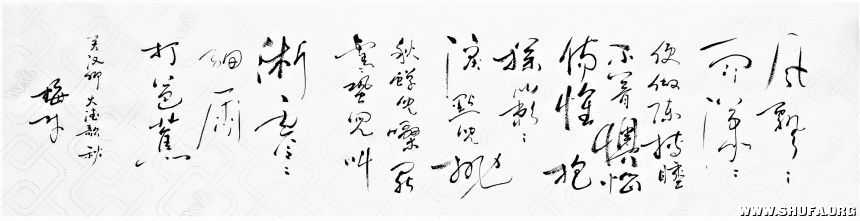 风飘々
雨潇々
便做陈抟睡
不着懊恼
伤怀抱
扑簌々
泪點兒抛
秋蝉兒噪罷
寒蛩兒叫
淅零々
细雨
打芭蕉
关汉卿 大德歌 秋
WWW.SHUFA.ORG